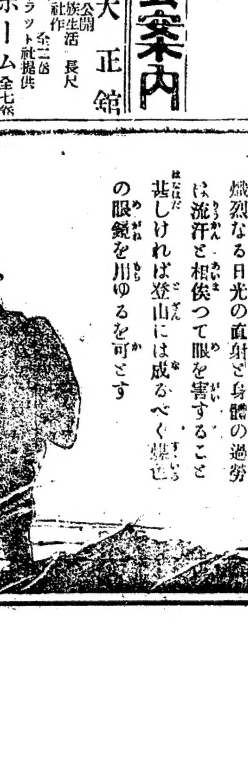 案内
大正舘
公開
族生活 長尺
社作
全二巻
ラット社提供
ホーム 全七巻
熾烈なる日光の直射と身體の過勞
は流汗と相俟つて眼を害すること
甚しければ登山には成るべく
の眼鏡を用ゆるを可とす